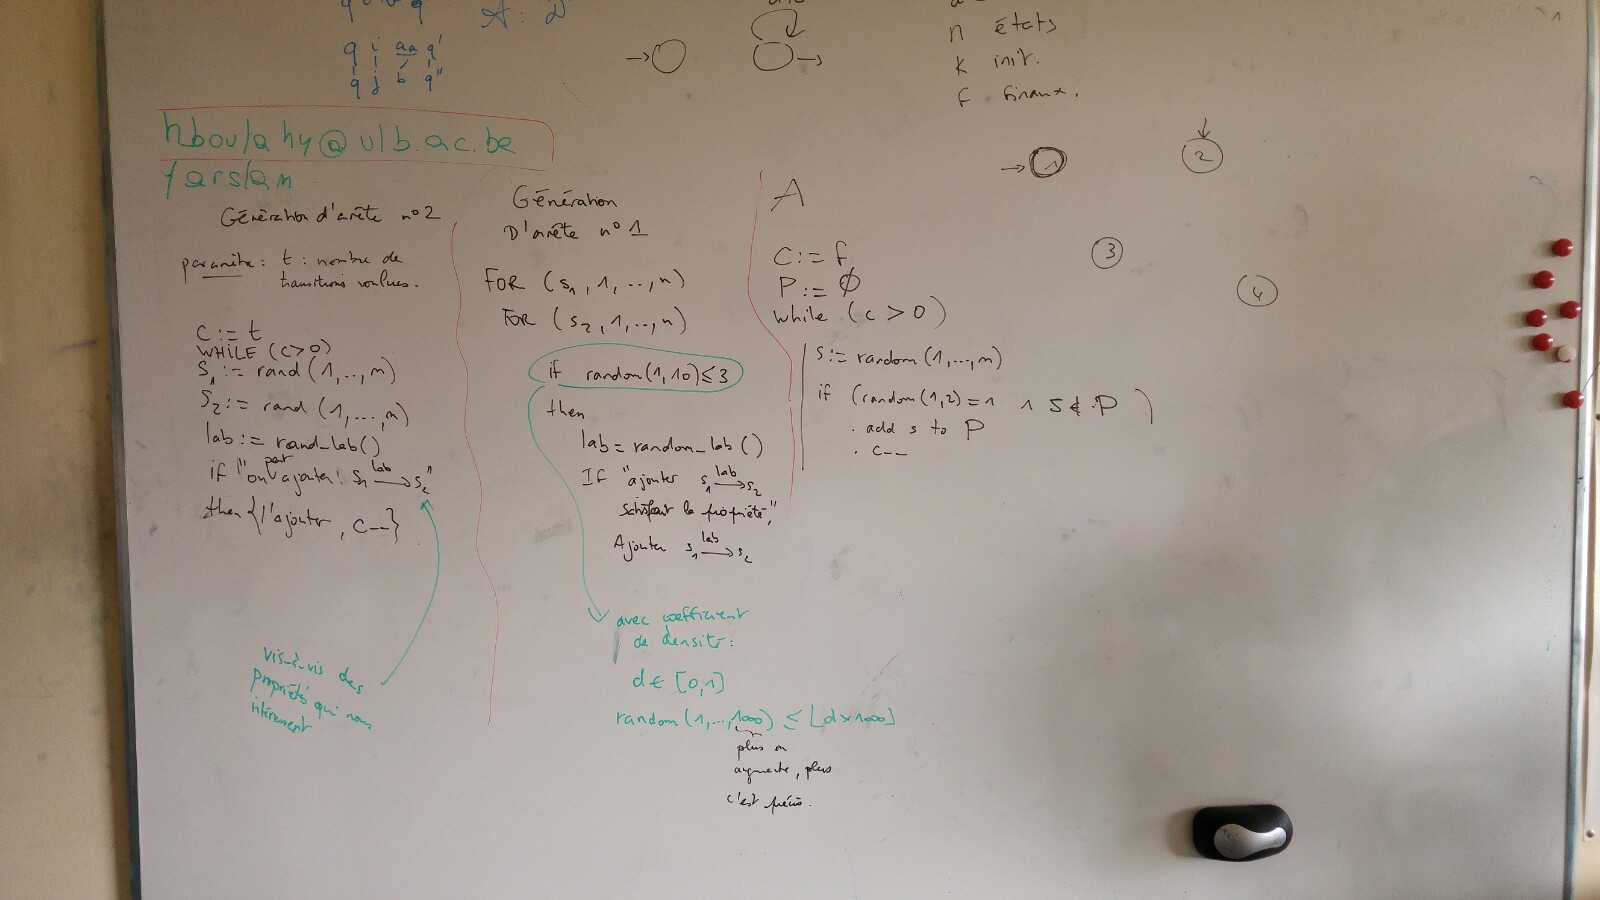 q i aa q'
q j b q''
A:
n états
k init.
f finaux.
hboulahy@ulb.ac.be
/arslan
Génération d'arête n° 2
paramètre : t : nombre de
transitions voulues.
C := t
WHILE (C>0)
S₁ := rand (1,..,n)
S₂ := rand (1,...,n)
lab := rand_lab()
if "on peut ajouter s₁ lab→ s₂"
then {l'ajouter, C--}
vis-à-vis des
propriétés qui nous
intéressent
Génération
D'arête n° 1
FOR (s₁, 1, .., n)
FOR (s₂, 1, .., n)
if random(1,10) ≤ 3
then
lab = random_lab ()
If "ajouter s₁ lab→ s₂
satisfait la propriété"
Ajouter s₁ lab→ s₂
avec coefficient
de densité :
d ∈ [0,1]
random (1,...,1000) ≤ ⌊d×1000⌋
plus on
augmente, plus
c'est précis.
A
C := f
P := Ø
while (c > 0)
s := random (1,...,n)
if (random(1,2) = 1 ∧ s ∉ P )
. add s to P
. c--
1
2
3
4